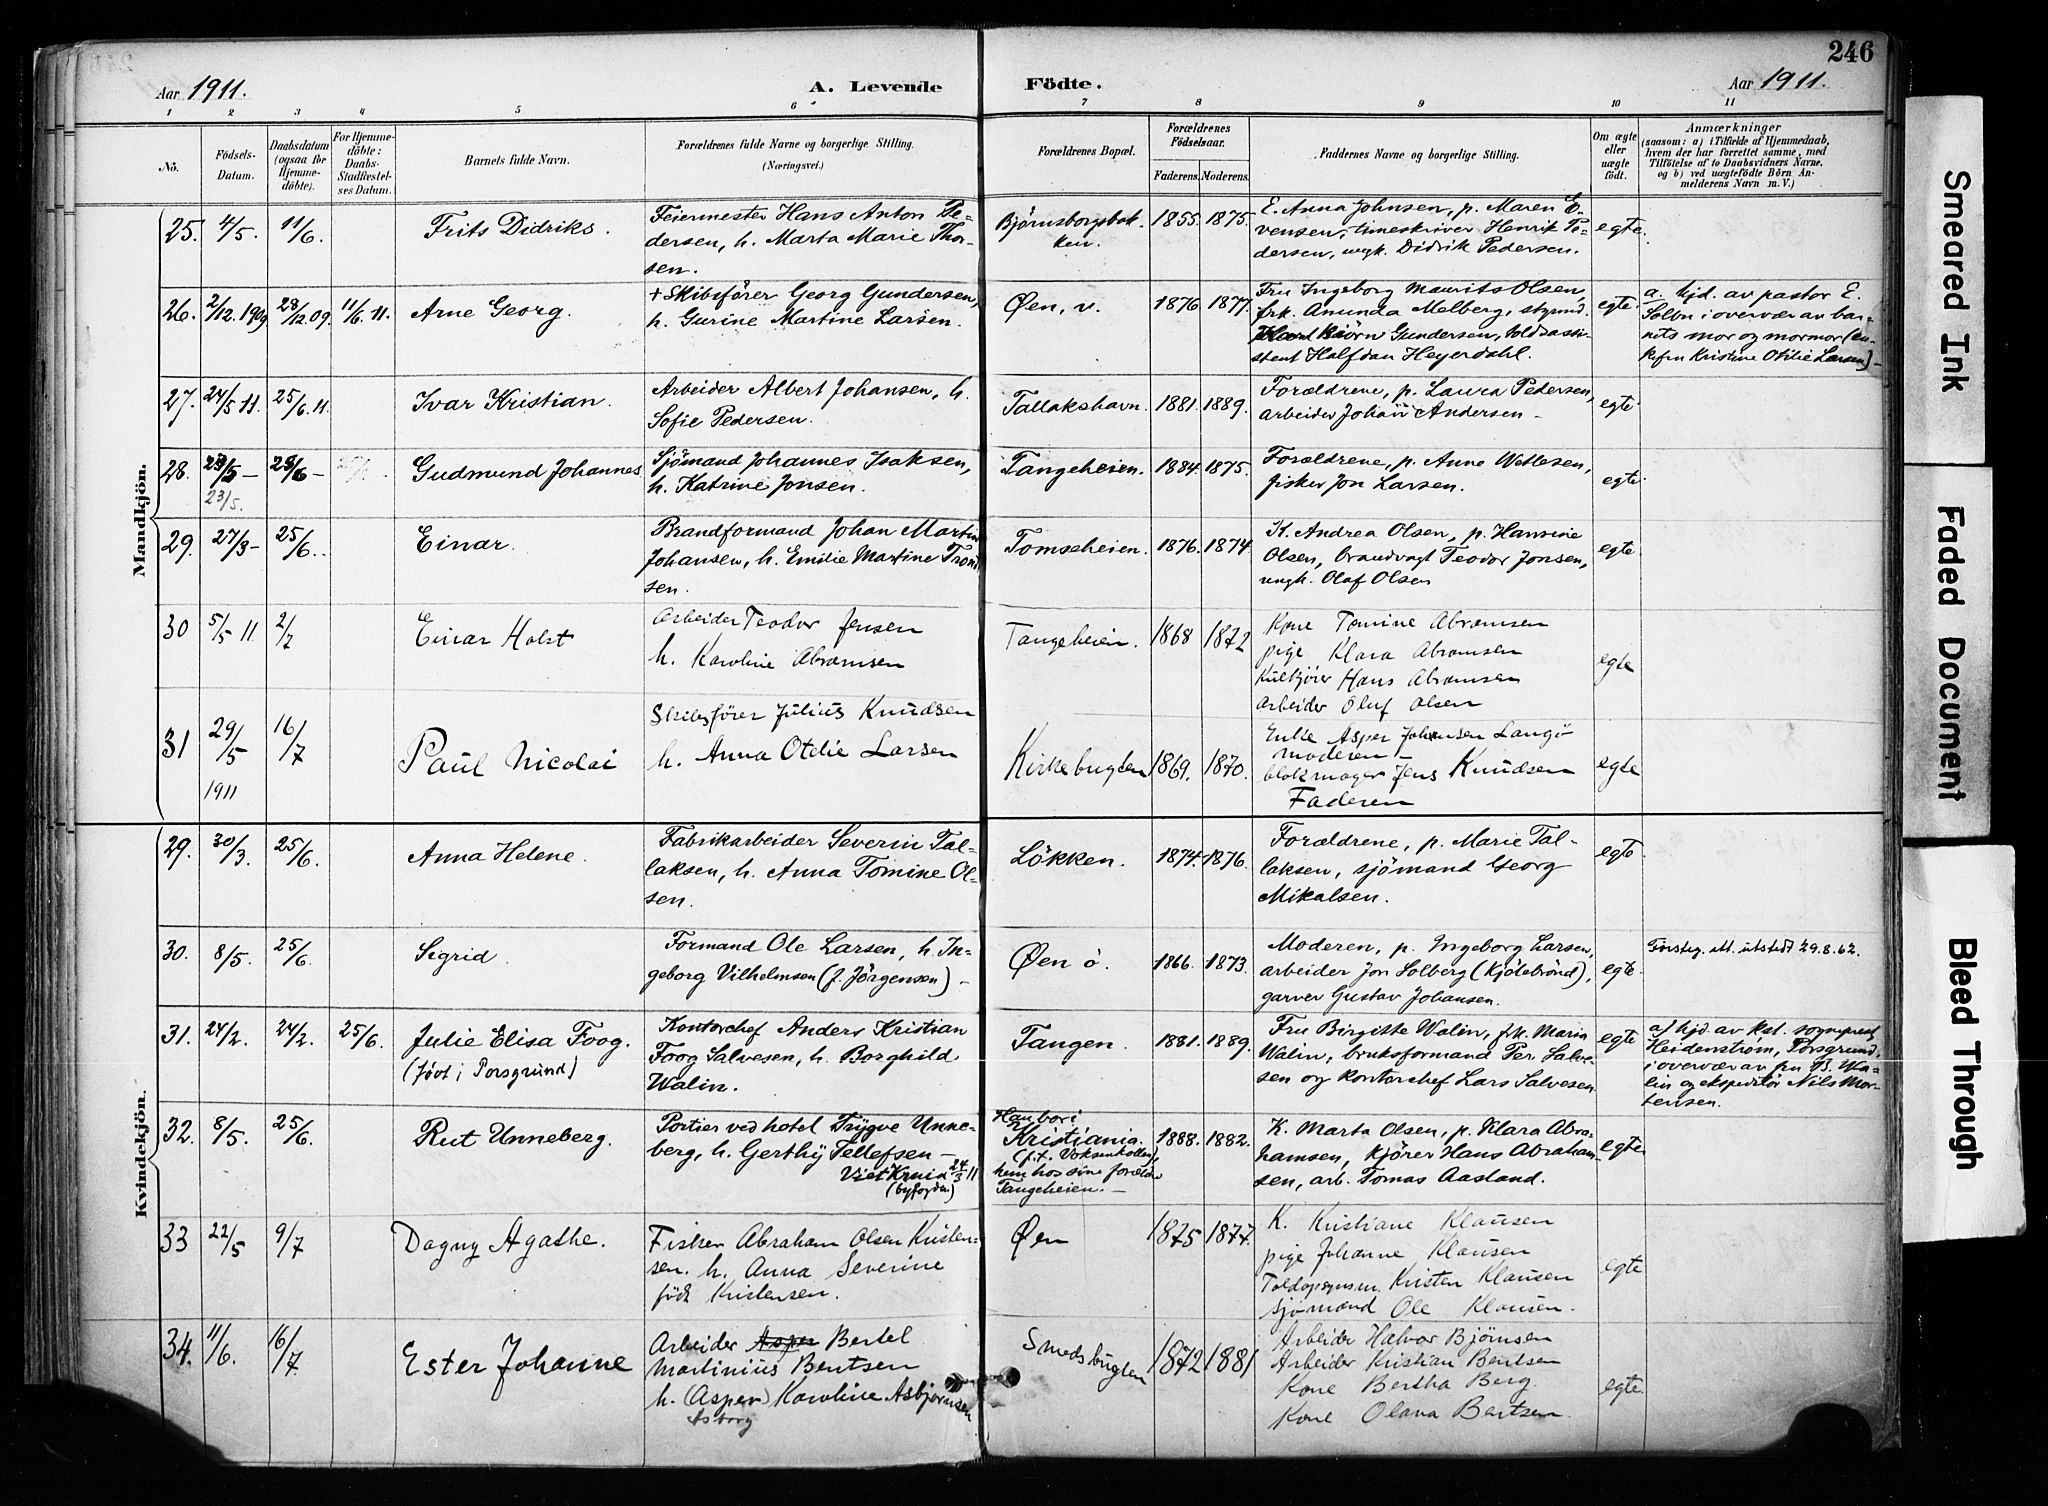 246
Aar 1911.
A. Levende Födte.
Aar 1911.
1 2 3 4 5 6 7 8 9 10 11
No.
Födsels-Datum.
Daabsdatum (ogsaa for Hjemme-döbte).
For Hjemme-döbte: Daabs-Stadfæstel-ses Datum.
Barnets fulde Navn.
Forældrenes fulde Navne og borgerlige Stilling.
(Næringsvei.)
Forældrenes Bopæl.
Forældrenes Födselsaar.
Faderens. Moderens.
Faddernes Navne og borgerlige Stilling.
Om ægte eller uægte født.
Anmærkninger
(saasom: a) i Tilfælde af Hjemmedaab,
hvem der har forrettet samme, med
Tilföielse af to Daabsvidners Navne,
og b) ved uægtefödte Börn An-
melderens Navn m. V.)
Mandkjön.
25. 4/5. 11/6. Frits Didriks.
Feiermester Hans Anton Pe-
dersen, h. Marta Marie Thor-
sen.
Bjørnsborgsbak-
ken.
1855. 1875.
E. Anna Johnsen, p. Maren E-
vensen, timeskriver Henrik Pe-
dersen, ungk. Didrik Pedersen.
egte.
26. 2/12. 1909 28/12.09. 11/6.11. Arne Georg.
+ Skibsfører Georg Gundersen,
h. Gurine Martine Larsen.
Øen, v. 1876 1877.
Fru Ingeborg Maurits Olsen,
frk. Amunda Melberg, styrmd.
Bjørn Gundersen, toldsassi-
stent Halfdan Heyerdahl.
egte.
a. hjd. av pastor E.
Solbu i overvær av bar-
nets mor og mormor (en-
kefru Kristine Otilie Larsen) -
27. 24/5 11. 25/6.11. Ivar Kristian.
Arbeider Albert Johansen, h.
Sofie Pedersen.
Tallakshavn. 1881. 1889.
Forældrene, p. Laura Pedersen,
arbeider Johan Andersen -
egte.
28. 23/5 - 25/6 - Gudmund Johannes
23/5.
Sjömand Johannes Isaksen,
h. Katrine Jonsen.
Tangeheien. 1884. 1875.
Forældrene, p. Anne Wetlesen,
fisker Jon Larsen.
egte.
29. 27/3 - 25/6. Einar.
Brandformand Johan Martin
Johansen, h. Emilie Martine Trom-
sen.
Tomseheien. 1876. 1874
K. Andrea Olsen, p. Hansine
Olsen, brandvagt Teodor Jonsen,
ungk. Olaf Olsen
egte.
30 5/5 11. 2/7 Einar Holst
Arbeider Teodor Jensen
h. Karoline Abramsen
Tangeheien. 1868 1872
Kone Tomine Abramsen
pige Klara Abramsen
Kulkjører Hans Abramsen
Arbeider Oluf Olsen
egte
31 29/5 1911 16/7 Paul Nicolai
Skibsfører Julius Knudsen
h. Anna Otelie Larsen
Kirkebugten 1869. 1870.
Enke Asper Johansen Langø
moderen -
blokmager Jens Knudsen
Faderen
egte
Kvindekjön.
29. 30/3. 25/6. Anna Helene.
Fabrikarbeider Severin Tal-
laksen, h. Anna Tomine Ol-
sen.
Lökken. 1874. 1876.
Forældrene, p. Marie Tal-
laksen, sjömand Georg
Mikalsen.
egte.
30. 8/5. 25/6. Sigrid.
Formand Ole Larsen, h. In-
geborg Vilhelmsen (f. Jörgensen) -
Øen ö. 1866. 1873.
Moderen, p. Ingeborg Larsen,
arbeider Jon Solberg (Kjölebrönd),
garver Gustav Johansen.
egte.
utstedt 29.8.62.
31. 24/2. 24/2. 25/6. Julie Elisa Foog.
(født i Porsgrund)
Kontorchef Anders Kristian
Foog Salvesen, h. Borghild
Walin.
Tangen. 1881. 1889.
Fru Birgitte Walin, frk. Maria
Walin, bruksformand Per Salve-
sen og kontorchef Lars Salvesen.
egte
a) hjd. av kst. sogneprest
Heidenstrøm, Porsgrund,
i overvær av fru B. Wa-
lin og ekspeditör Nils Mor-
tensen.
32. 8/5. 25/6. Rut Unneberg.
Portier ved hotel Trygve Unne-
berg, h. Gerthy Tellefsen -
Viet Krnia 24/3 11
(byfogden)
Han bor i
Kristiania.
(f.t. Voksenkollen),
hun hos sine forældre
Tangeheien. -
1888. 1882.
K. Marta Olsen, p. Klara Abra-
hamsen, kjører Hans Abraham-
sen, arb. Tomas Aasland.
egte
33 22/5 9/7 Dagny Agathe.
Fisker Abraham Olsen Kristen-
sen. h. Anna Severine
født Kristensen.
Øen 1875 1877.
K. Kristiane Klausen
pige Johanne Klausen
Toldopsynsm. Kristen Klausen
Sjømand Ole Klausen.
egte
34. 11/6. 16/7. Ester Johanne
Arbeider Asper Bertel
Martinius Bentsen
h. (Asper) Karoline Asbjørnsen
Asborg
Smedsbugten 1872 1881
Arbeider Halvor Bjørnsen
Arbeider Kristian Bentsen
Kone Bertha Berg.
Kone Olava Bentsen.
egte.
Smeared Ink
Faded Document
Bleed Through